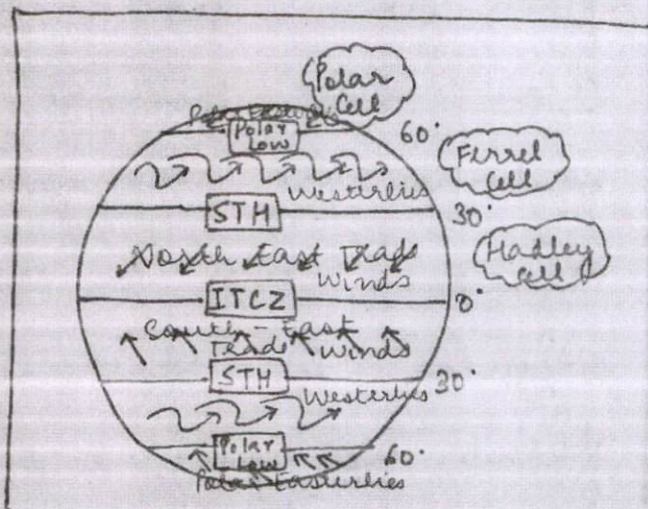 Polar
Cell
Polar Easterlies
Polar
Low
60°
Ferrel
Cell
Westerlies
STH
30°
Hadley
Cell
North East Trade
Winds
ITCZ
0°
South-East
Trade Winds
STH
30°
Westerlies
Polar
Low
60°
Polar Easterlies